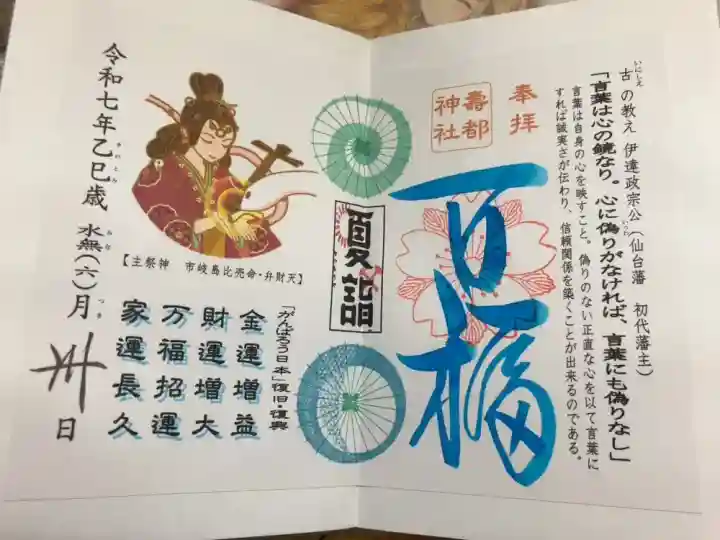 古の教え 伊達政宗公(仙台藩 初代藩主)
いにしえ
「言葉は心の鏡なり。心に偽りがなければ、言葉にも偽りなし」
いつわり
言葉は自身の心を映すこと。偽りのない正直な心を以て言葉に
すれば誠実さが伝わり、信頼関係を築くことが出来るのである。
奉拝
壽都
神社
百福
夏詣
【主祭神 市岐島比売命・弁財天】
「がんばろう日本」復旧・復興
金運増益
財運増大
万福招運
家運長久
令和七年乙巳歳 水無(六)月 卅日
きのとみ
みな
つき